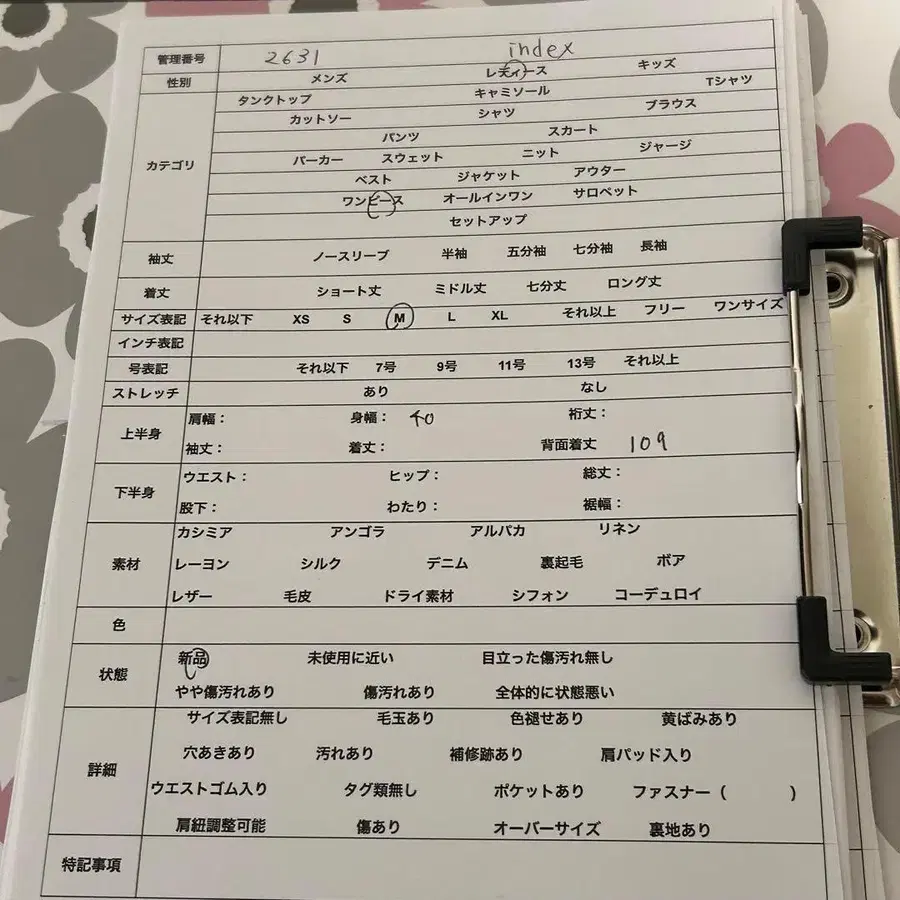 管理番号 2631 index
性別 メンズ レディース キッズ
カテゴリ タンクトップ キャミソール Tシャツ
カットソー シャツ ブラウス
パンツ スカート
パーカー スウェット ニット ジャージ
ベスト ジャケット アウター
ワンピース オールインワン サロペット
セットアップ
袖丈 ノースリーブ 半袖 五分袖 七分袖 長袖
着丈 ショート丈 ミドル丈 七分丈 ロング丈
サイズ表記 それ以下 XS S M L XL それ以上 フリー ワンサイズ
インチ表記
号表記 それ以下 7号 9号 11号 13号 それ以上
ストレッチ あり なし
上半身 肩幅： 身幅： 40 裄丈：
袖丈： 着丈： 背面着丈 109
下半身 ウエスト： ヒップ： 総丈：
股下： わたり： 裾幅：
素材 カシミア アンゴラ アルパカ リネン
レーヨン シルク デニム 裏起毛 ボア
レザー 毛皮 ドライ素材 シフォン コーデュロイ
色
状態 新品 未使用に近い 目立った傷汚れ無し
やや傷汚れあり 傷汚れあり 全体的に状態悪い
詳細 サイズ表記無し 毛玉あり 色褪せあり 黄ばみあり
穴あきあり 汚れあり 補修跡あり 肩パッド入り
ウエストゴム入り タグ類無し ポケットあり ファスナー（ ）
肩紐調整可能 傷あり オーバーサイズ 裏地あり
特記事項